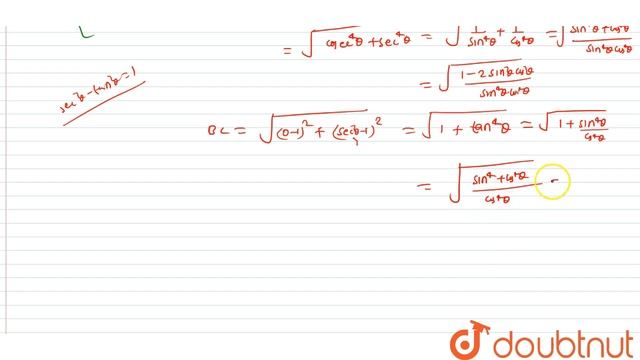 = √(cosec⁴θ + sec⁴θ) = √(1/sin⁴θ + 1/cos⁴θ) = √((sin⁴θ + cos⁴θ)/(sin⁴θ cos⁴θ))
sec²θ - tan²θ = 1
= √((1 - 2 sin²θ cos²θ)/(sin⁴θ cos⁴θ))
BC = √((0-1)² + (sec²θ-1)²) = √(1 + tan⁴θ) = √(1 + sin⁴θ/cos⁴θ)
= √((sin⁴ + cos⁴θ)/cos⁴θ) =
doubtnut